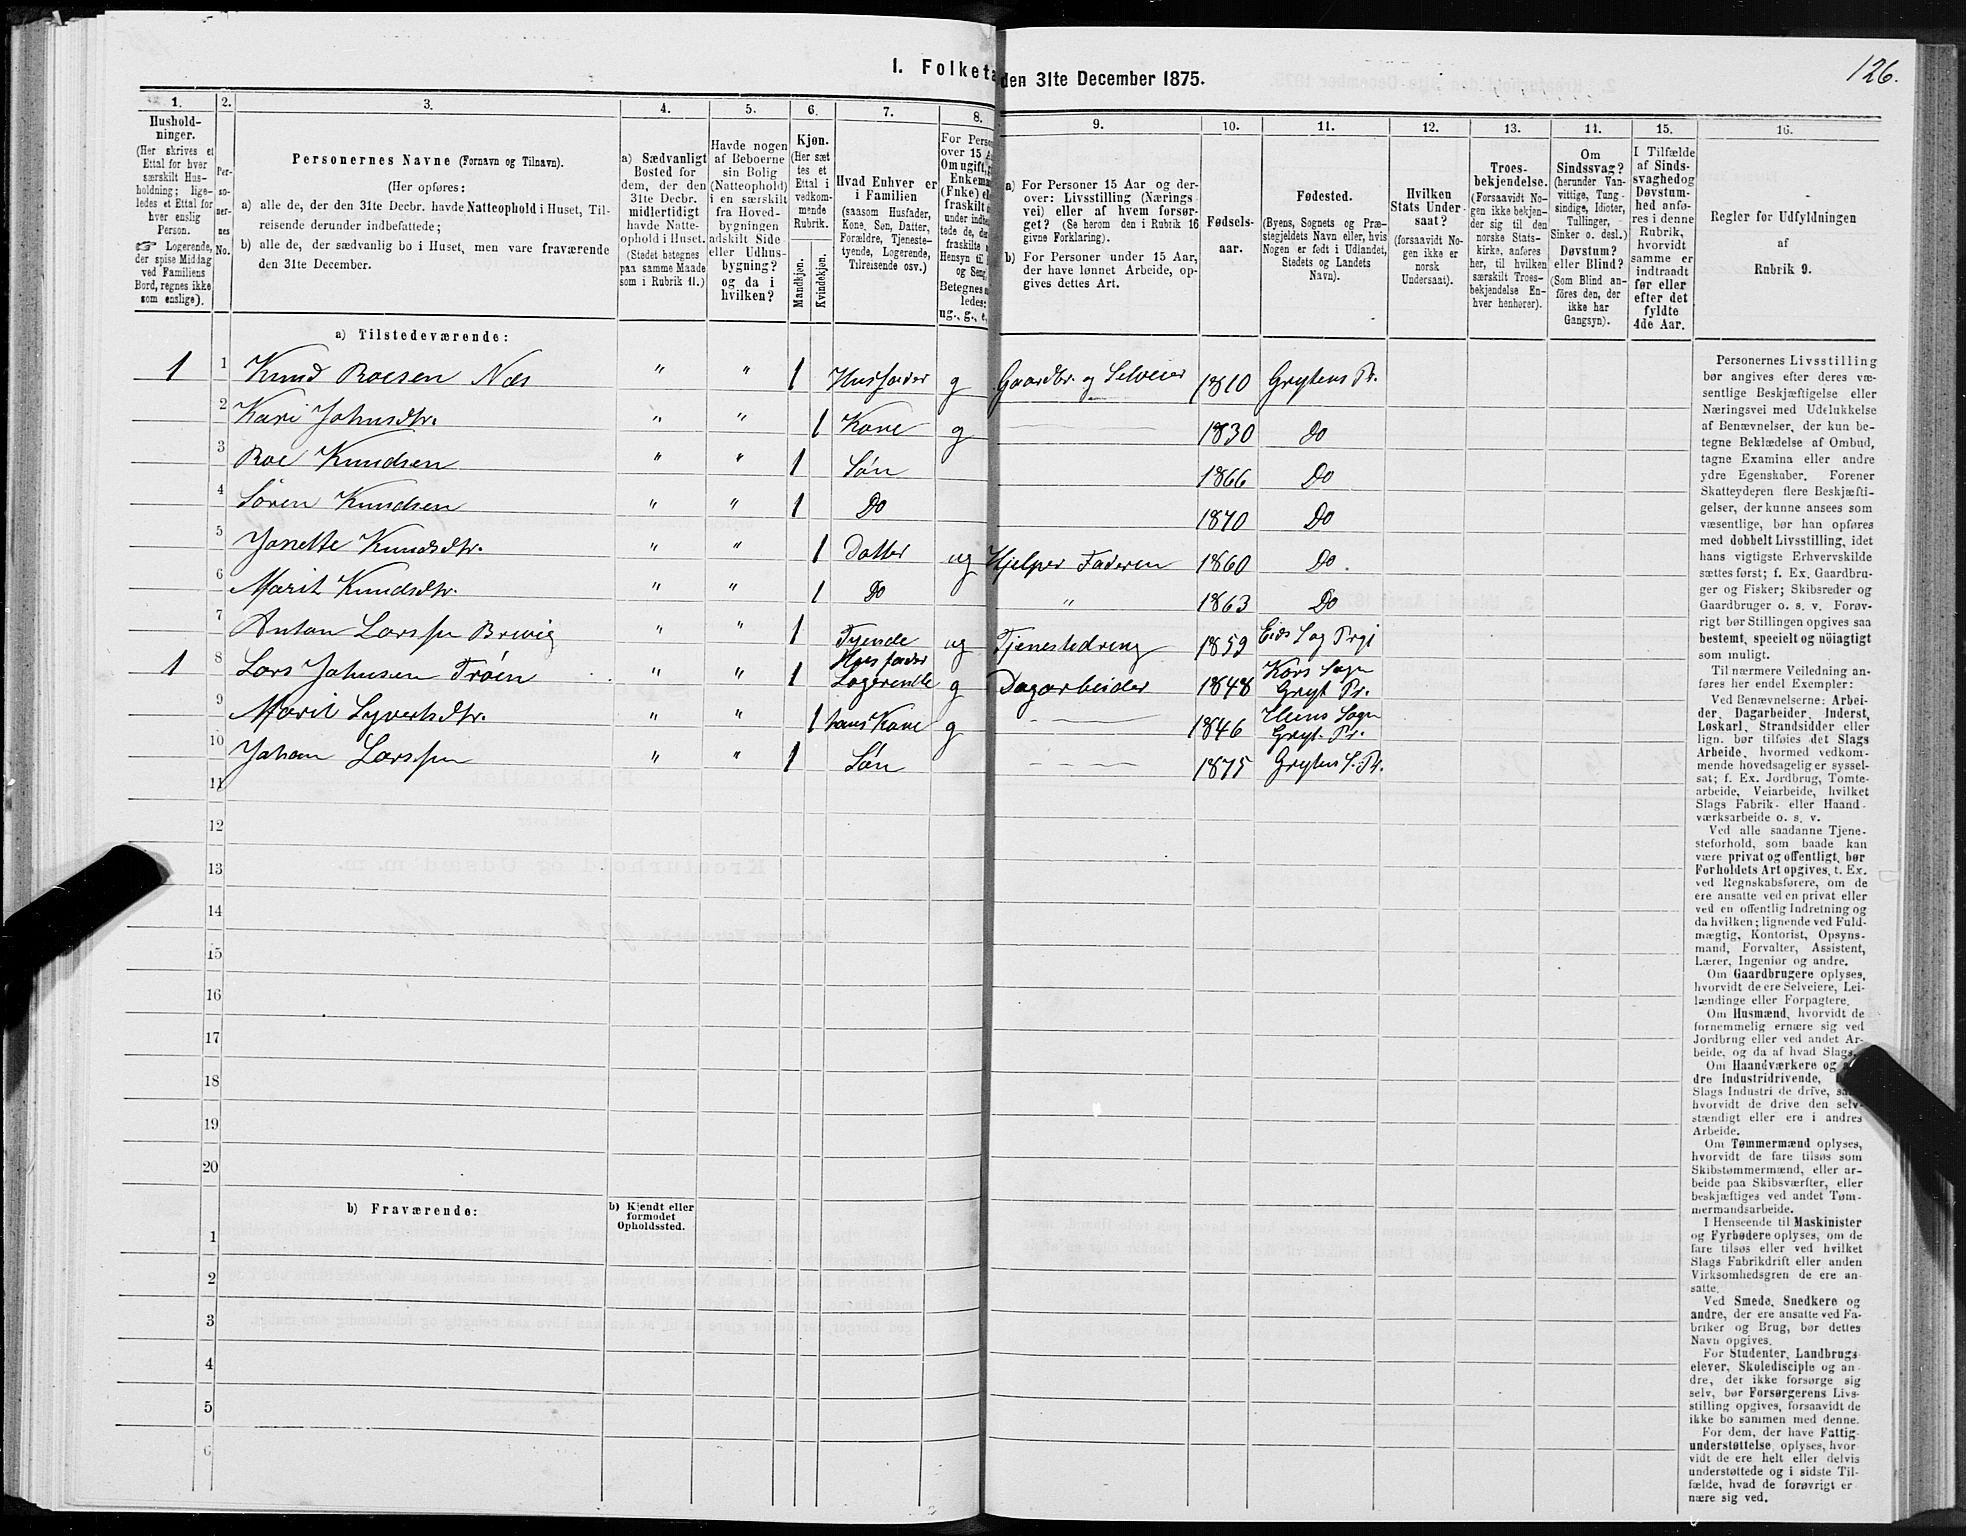 126.
I. Folketa den 31te December 1875.
1. 2. 3. 4. 5. 6. 7. 8. 9. 10. 11. 12. 13. 14. 15. 16.
Hushold-
ninger.
(Her skrives et
Ettal for hver
særskilt Hus-
holdning; lige-
ledes et Ettal for
hver enslig
Person.
☞ Logerende,
der spise Middag
ved Familiens
Bord, regnes ikke
som enslige).
Per-
so-
ner-
nes
No.
Personernes Navne (Fornavn og Tilnavn).
(Her opføres:
a) alle de, der den 31te Decbr. havde Natteophold i Huset, Til-
reisende derunder indbefattede;
b) alle de, der sædvanlig bo i Huset, men vare fraværende
den 31te December.
a) Sædvanligt
Bosted for
dem, der den
31te Decbr.
midlertidigt
havde Natte-
ophold i Huset.
(Stedet betegnes
paa samme Maade
som i Rubrik 11.)
Havde nogen
af Beboerne
sin Bolig
(Natteophold)
i en særskilt
fra Hoved-
bygningen
adskilt Side-
eller Udhus-
bygning?
og da i
hvilken?
Kjøn.
(Her sæt
tes et
Ettal i
vedkom-
mende
Rubrik.
Mandkjøn.
Kvindekjøn.
Hvad Enhver er
i Familien
(saasom Husfader,
Kone, Søn, Datter,
Forældre, Tjeneste-
tyende, Logerende,
Tilreisende osv.)
For Pers
over 15 A
Om ugift, g
Enkema
(Fnke) el
fraskilt
under indbe
tede de, d
fraskilte
Hensyn til
og Seng.
Betegnes
ledes:
ug., g., e,
a) For Personer 15 Aar og der-
over: Livsstilling (Nærings-
vei) eller af hvem forsør-
get? (Se herom den i Rubrik 16
givne Forklaring).
b) For Personer under 15 Aar,
der have lønnet Arbeide, op-
gives dettes Art.
Fødsels-
aar.
Fødested.
(Byens, Sognets og Præ-
stegjeldets Navn eller, hvis
Nogen er født i Udlandet,
Stedets og Landets
Navn).
Hvilken
Stats Under-
saat?
(forsaavidt No-
gen ikke er
norsk
Undersaat).
Troes-
bekjendelse.
(Forsaavidt No-
gen ikke bekjen-
der sig til den
norske Stats-
kirke, anføres
her, til hvilken
særskilt Troes-
bekjendelse En-
hver henhører).
Om
Sindssvag?
(herunder Van-
vittige, Tung-
sindige, Idioter,
Tullinger,
Sinker o. desl.)
Døvstum?
eller Blind?
(Som Blind an-
føres den, der
ikke har
Gangsyn).
I Tilfælde
af Sinds-
svaghed og
Døvstum-
hed anfø-
res i denne
Rubrik,
hvorvidt
samme er
indtraadt
før eller
efter det
fyldte
4de Aar.
Regler før Udfyldningen
af
Rubrik 9.
a) Tilstedeværende:
1 1 Knud Roesen Næs " " 1 Husfader g Gaardbr. og Selveier 1810 Grytens Pr.
2 Kari Johnsdtr. " " 1 Kone g 1830 Do
3 Roe Knudsen " " 1 Søn 1866 Do
4 Sören Knudsen " " 1 Do 1870 Do
5 Janette Knudsdtr. " " 1 Datter ug Hjelper Faderen 1860 Do.
6 Marit Knudsdtr. " " 1 Do " 1863 Do
7 Anton Larssen Brevig " " 1 Tyende ug Tjenestedreng 1859 Eids Sog Prgj
1 8 Lars Johnsen Tröen " " 1 Husfader Logerende g Dagarbeider 1848 Kors Sogn Gryt Pr.
9 Marit Syvertsdtr. " " 1 hans Kone g 1846 Hens Sogn Gryt. Pr.
10 Johan Larssen " " 1 Søn 1875 Grytens S. Pr.
11
12
13
14
15
16
17
18
19
20
b) Fraværende: b) Kjendt eller
formodet
Opholdssted.
1
2
3
4
5
6
Personernes Livsstilling
bør angives efter deres væ-
sentlige Beskjæftigelse eller
Næringsvei med Udelukkelse
af Benævnelser, der kun be-
tegne Beklædelse af Ombud,
tagne Examina eller andre
ydre Egenskaber. Forener
Skatteyderen flere Beskjæfti-
gelser, der kunne ansees som
væsentlige, bør han opføres
med dobbelt Livsstilling, idet
hans vigtigste Erhvervskilde
sættes først; f. Ex. Gaardbru-
ger og Fisker; Skibsreder og
Gaardbruger o. s. v. Forøv-
rigt bør Stillingen opgives saa
bestemt, specielt og nöiagtigt
som muligt.
Til nærmere Veiledning an-
føres her endel Exempler:
Ved Benævnelserne: Arbei-
der, Dagarbeider, Inderst,
Løskarl, Strandsidder eller
lign. bør tilføies det Slags
Arbeide, hvormed vedkom-
mende hovedsagelig er syssel-
sat; f. Ex. Jordbrug, Tomte-
arbeide, Veiarbeide, hvilket
Slags Fabrik- eller Haand-
værksarbeide o. s. v.
Ved alle saadanne Tjene-
steforhold, som baade kan
være privat og offentligt, bør
Forholdets Art opgives, t. Ex.
ved Regnskabsførere, om de
ere ansatte ved en privat eller
ved en offentlig Indretning og
da hvilken; lignende ved Fuld-
mægtig, Kontorist, Opsyns-
mand, Forvalter, Assistent,
Lærer, Ingeniør og andre.
Om Gaardbrugere oplyses,
hvorvidt de ere Selveiere, Lei-
lændinge eller Forpagtere.
Om Husmænd, hvorvidt de
fornemmelig ernære sig ved
Jordbrug eller ved andet Ar-
beide, og da af hvad Slags.
Om Haandværkere og
dre Industridrivende,
Slags Industri de drive, sa
hvorvidt de drive den selv-
stændigt eller ere i andres
Arbeide.
Om Tømmermænd oplyses,
hvorvidt de fare tilsøs som
Skibstømmermænd, eller ar-
beide paa Skibsværfter, eller
beskjæftiges ved andet Tøm-
mermandsarbeide.
I Henseende til Maskinister
og Fyrbødere oplyses, om de
fare tilsøs eller ved hvilket
Slags Fabrikdrift eller anden
Virksomhedsgren de ere an-
satte.
Ved Smede, Snedkere og
andre, der ere ansatte ved Fa-
briker og Brug, bør dettes
Navn opgives.
For Studenter, Landbrugs-
elever, Skoledisciple og an-
dre, der ikke forsørge sig
selv, bør Forsørgerens Livs-
stilling opgives, forsaavidt de
ikke bo sammen med denne.
For dem, der have Fattig-
understøttelse, oplyses, hvor-
vidt de ere helt eller delvis
understøttede og i sidste Til-
fælde, hvad de forøvrigt er
nære sig ved.